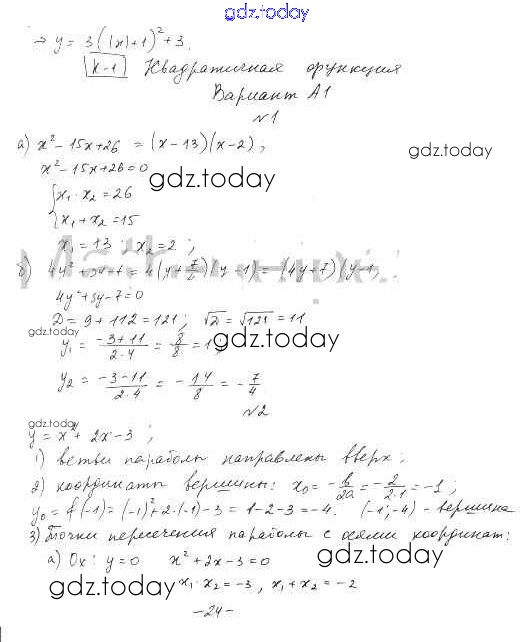 gdz.today
⇒ y = 3(|x|+1)² + 3.
К-1 Квадратичная функция
Вариант А1
№1
а) x² - 15x + 26 = (x - 13)(x - 2),
gdz.today
x² - 15x + 26 = 0
{x₁ · x₂ = 26
gdz.today
x₁ + x₂ = 15
x₁ = 13 ; x₂ = 2 ;
б) 4y² + 3y - 7 = 4(y + 7/4)(y - 1) = (4y + 7)(y - 1)
4y² + 3y - 7 = 0
D = 9 + 112 = 121; √D = √121 = 11
gdz.today
y₁ = (-3+11)/(2·4) = 8/8 = 1;
gdz.today
y₂ = (-3-11)/(2·4) = -14/8 = -7/4
№2
gdz.today
y = x² + 2x - 3 ;
1) ветви параболы направлены вверх;
2) координаты вершины: x₀ = -b/2a = -2/(2·1) = -1 ;
y₀ = f(-1) = (-1)² + 2·(-1) - 3 = 1 - 2 - 3 = -4. (-1; -4) - вершина
3) Точки пересечения параболы с осями координат:
а) Ox: y = 0 x² + 2x - 3 = 0
gdz.today
gdz.today
x₁ · x₂ = -3 , x₁ + x₂ = -2
- 24 -